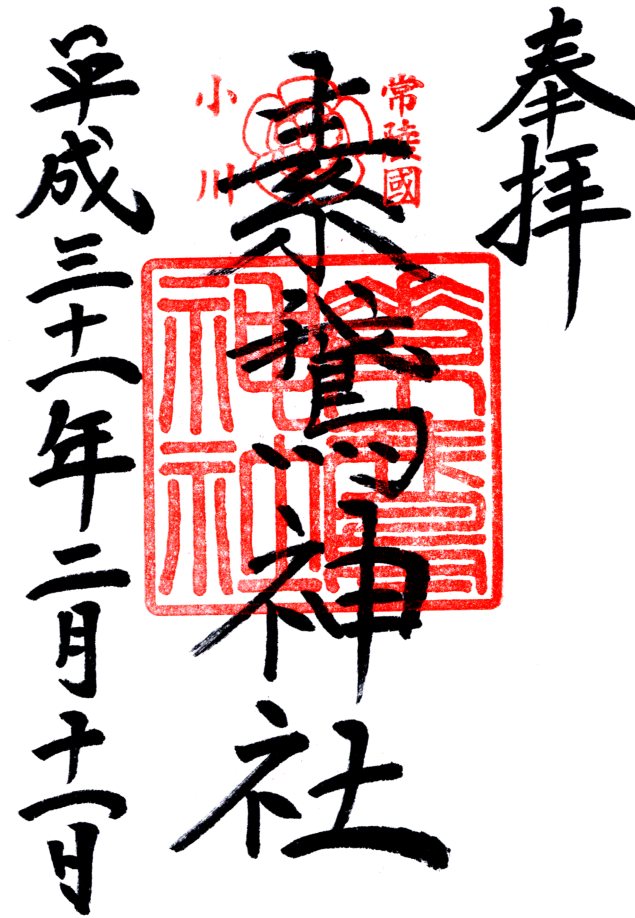 奉拝
常陸國
小川
素鵞神社
素鵞神社
平成三十一年二月十一日